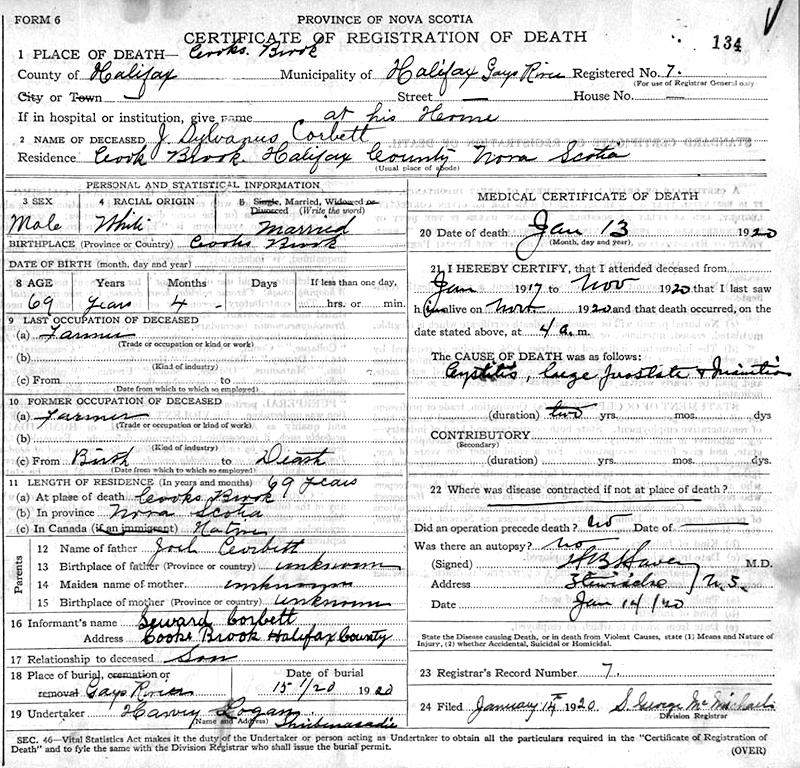 FORM 6 PROVINCE OF NOVA SCOTIA
CERTIFICATE OF REGISTRATION OF DEATH 134
1 PLACE OF DEATH— Cooks. Brook
County of Halifax Municipality of Halifax Gays River Registered No. 7.
(For use of Registrar General only
City or Town Street — House No. —
If in hospital or institution, give name at his Home
2 NAME OF DECEASED J. Sylvanus Corbett
Residence Cook Brook. Halifax County Nova Scotia
(Usual place of abode)
PERSONAL AND STATISTICAL INFORMATION
3 SEX 4 RACIAL ORIGIN 5 Single, Married, Widowed or Divorced (Write the word)
Male White Married
BIRTHPLACE (Province or Country) Cooks Brook
DATE OF BIRTH (month, day and year)
8 AGE Years Months Days If less than one day,
69 years 4 - hrs. or min.
9 LAST OCCUPATION OF DECEASED
(a) Farmer
(Trade or occupation or kind or work)
(b)
(Kind of industry)
(c) From to
(Date from which to which so employed)
10 FORMER OCCUPATION OF DECEASED
(a) Farmer
(Trade or occupation or kind of work)
(b)
(Kind of industry)
(c) From Birth to Death
(Date from which to which so employed)
11 LENGTH OF RESIDENCE (In years and months) 69 years
(a) At place of death Cooks Brook
(b) In province Nova Scotia
(c) In Canada (if an immigrant) Native
Parents
12 Name of father Corbett
13 Birthplace of father (Province or country) unknown
14 Maiden name of mother unknown
15 Birthplace of mother (Province or country) unknown
16 Informant's name Seward Corbett
Address Cooks Brook Halifax County
17 Relationship to deceased Son
18 Place of burial, cremation or Date of burial
removal Gays River 15 1/20 1920
19 Undertaker Harvey Logan
(Name and Address) Shubenacadie
MEDICAL CERTIFICATE OF DEATH
20 Date of death Jan 13 1920
(Month, day and year)
21 I HEREBY CERTIFY, that I attended deceased from
Jan 1917 to Nov 1920 that I last saw
him alive on Nov 1920 and that death occurred, on the
date stated above, at 4 a. m.
The CAUSE OF DEATH was as follows:
Cystitis, Large Prostate &
(duration) two yrs. mos. dys
CONTRIBUTORY
(Secondary)
(duration) yrs. mos. dys.
22 Where was disease contracted if not at place of death?
Did an operation precede death? no Date of —
Was there an autopsy? no
(Signed) M.D.
Address Stewiacke N.S.
Date Jan 14/20
State the Disease causing Death, or in death from Violent Causes, state (1) Means and Nature of
Injury, (2) whether Accidental, Suicidal or Homicidal.
23 Registrar's Record Number 7.
24 Filed January 14th 1920 S. George McMichael
Division Registrar
SEC. 46—Vital Statistics Act makes it the duty of the Undertaker or person acting as Undertaker to obtain all the particulars required in the "Certificate of Registration of
Death" and to fyle the same with the Division Registrar who shall issue the burial permit. (OVER)